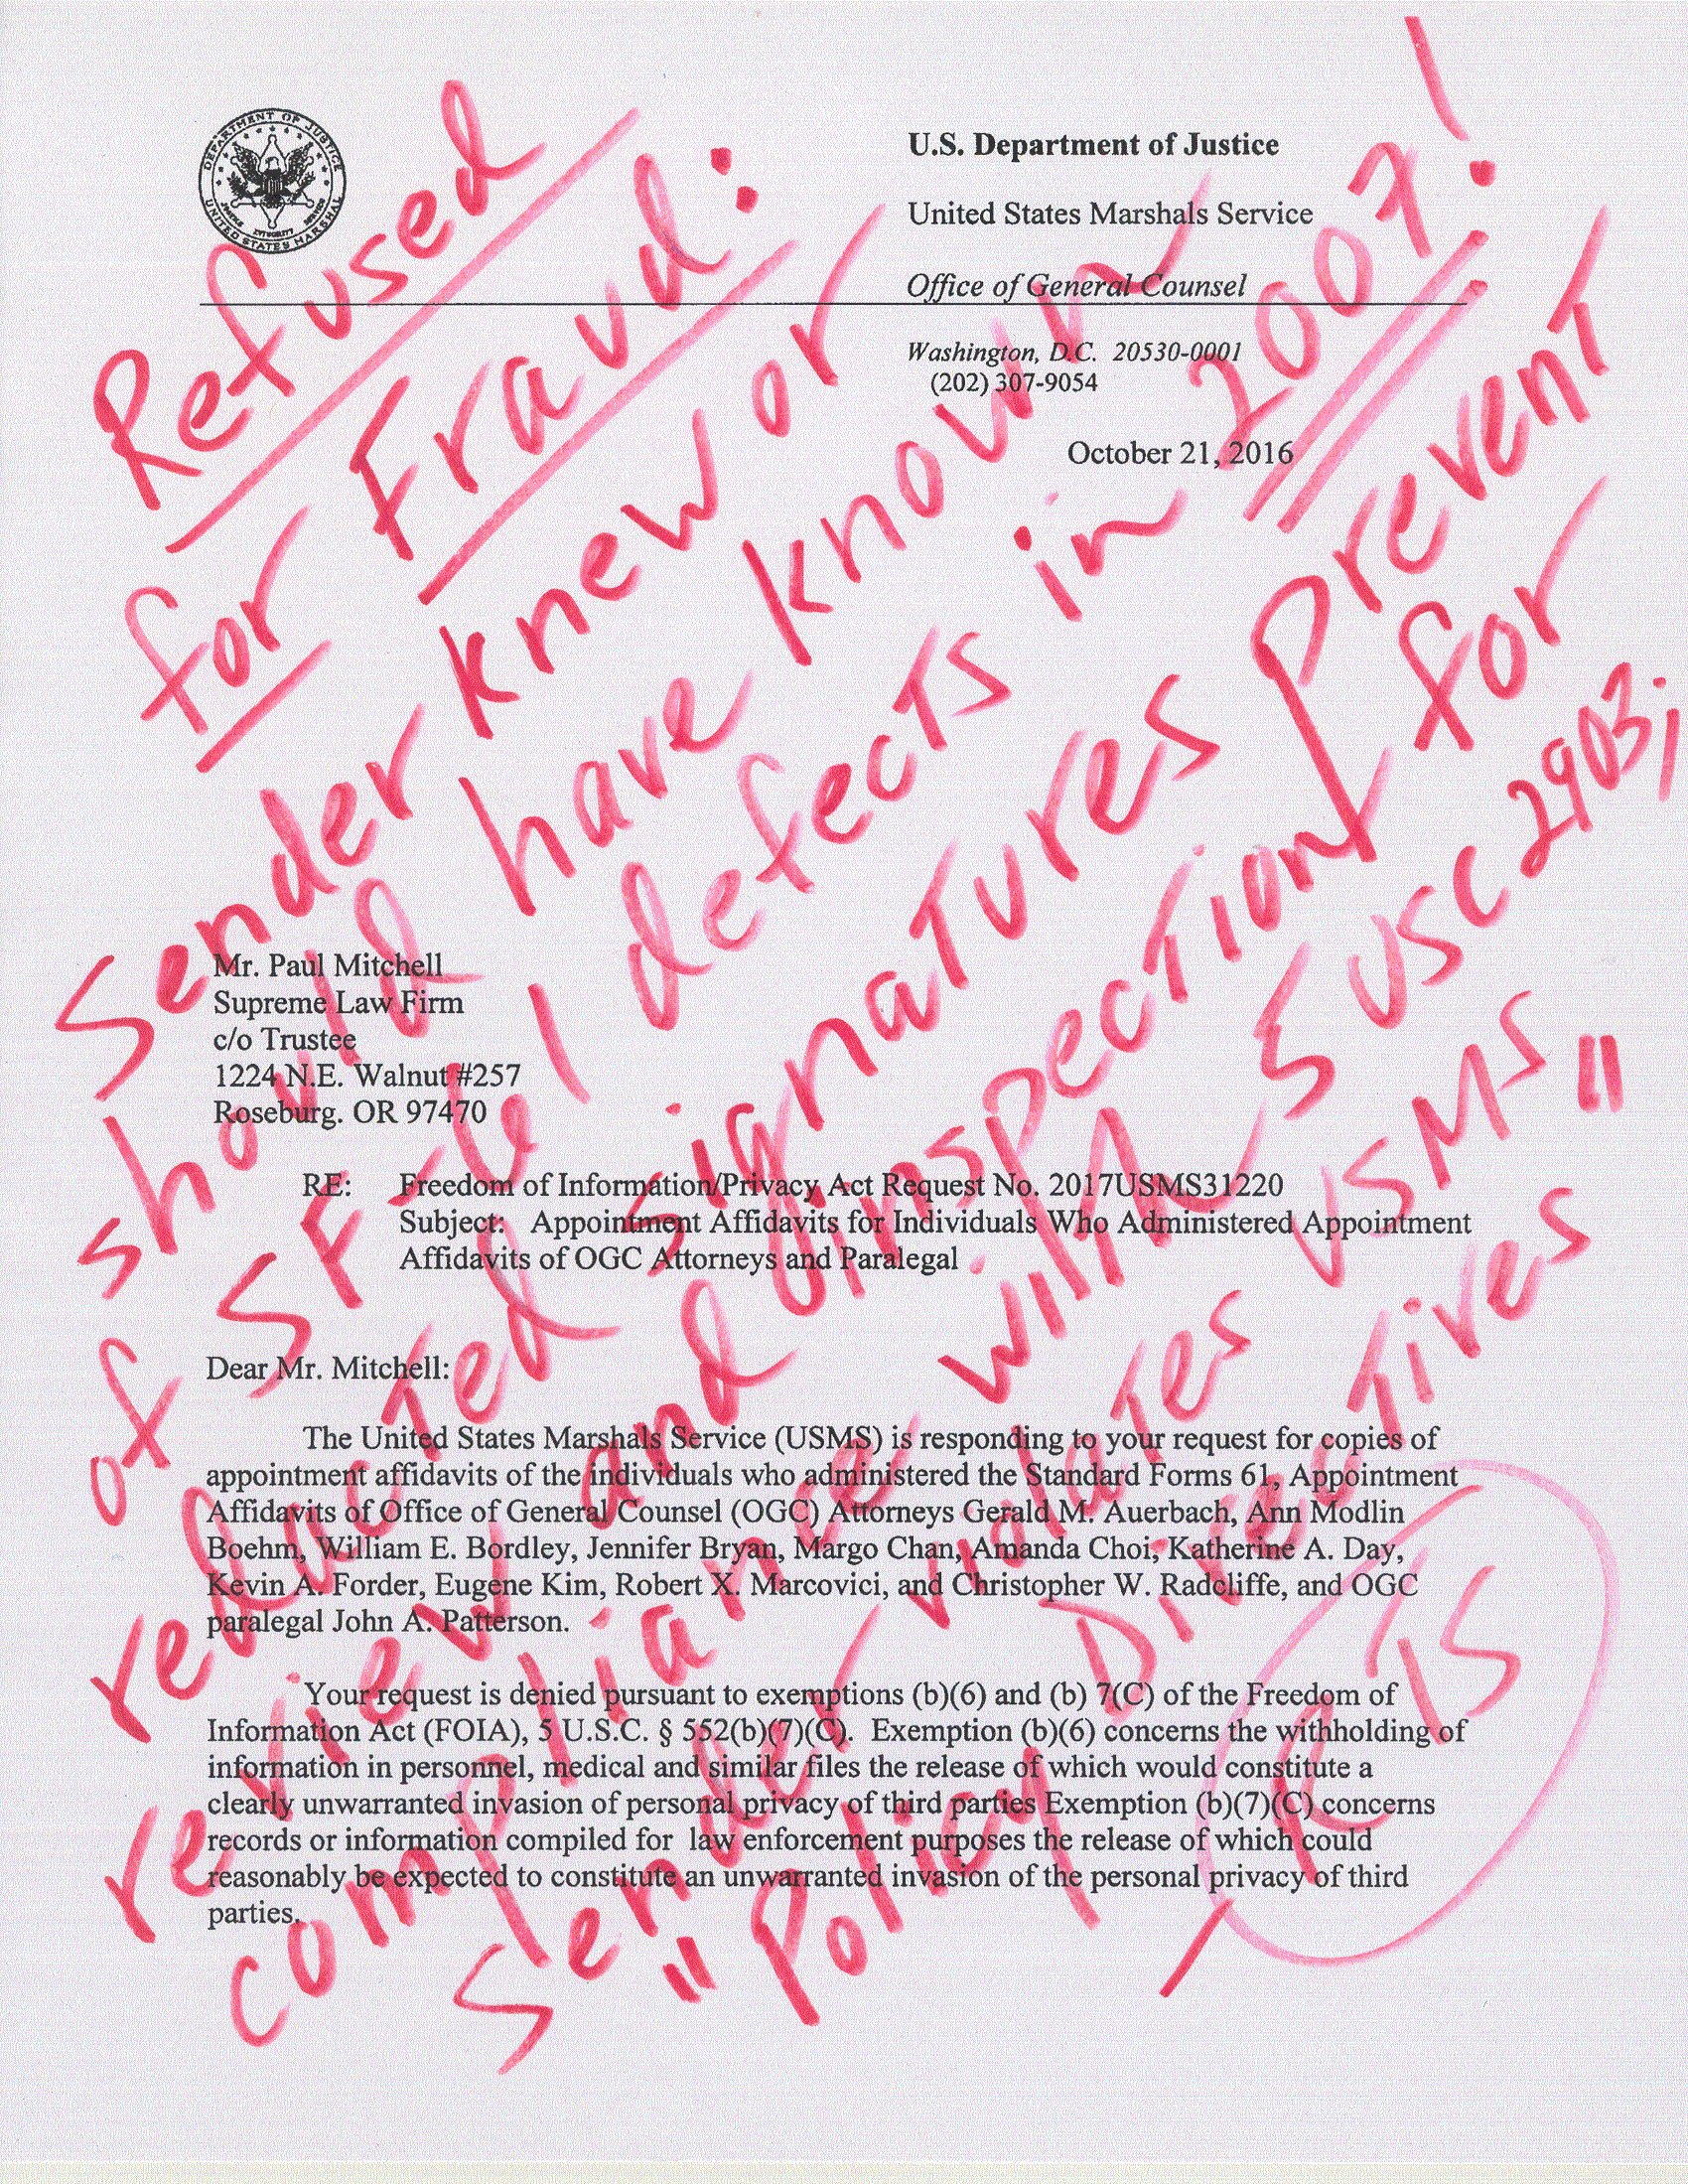 DEPARTMENT OF JUSTICE
UNITED STATES MARSHAL
JUSTICE INTEGRITY SERVICE
U.S. Department of Justice
United States Marshals Service
Office of General Counsel
Washington, D.C. 20530-0001
(202) 307-9054
October 21, 2016
Mr. Paul Mitchell
Supreme Law Firm
c/o Trustee
1224 N.E. Walnut #257
Roseburg. OR 97470
RE: Freedom of Information/Privacy Act Request No. 2017USMS31220
Subject: Appointment Affidavits for Individuals Who Administered Appointment
Affidavits of OGC Attorneys and Paralegal
Dear Mr. Mitchell:
The United States Marshals Service (USMS) is responding to your request for copies of
appointment affidavits of the individuals who administered the Standard Forms 61, Appointment
Affidavits of Office of General Counsel (OGC) Attorneys Gerald M. Auerbach, Ann Modlin
Boehm, William E. Bordley, Jennifer Bryan, Margo Chan, Amanda Choi, Katherine A. Day,
Kevin A. Forder, Eugene Kim, Robert X. Marcovici, and Christopher W. Radcliffe, and OGC
paralegal John A. Patterson.
Your request is denied pursuant to exemptions (b)(6) and (b) 7(C) of the Freedom of
Information Act (FOIA), 5 U.S.C. § 552(b)(7)(C). Exemption (b)(6) concerns the withholding of
information in personnel, medical and similar files the release of which would constitute a
clearly unwarranted invasion of personal privacy of third parties Exemption (b)(7)(C) concerns
records or information compiled for law enforcement purposes the release of which could
reasonably be expected to constitute an unwarranted invasion of the personal privacy of third
parties.
Refused
for Fraud:
Sender knew or
should have known
of SF-61 defects in 2007!
redacted signatures prevent
review and inspection for
compliance with 5 USC 2903;
Sender violates USMS
"Policy Directives"